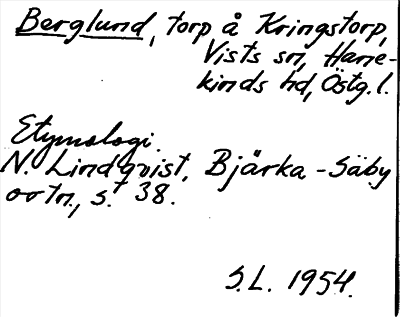 Berglund, torp å Kringstorp,
Vists sn, Hane-
kinds hd, Östg.l.
Etymologi.
N. Lindqvist, Bjärka-Säby
ortn., s. 38.
S.L. 1954.